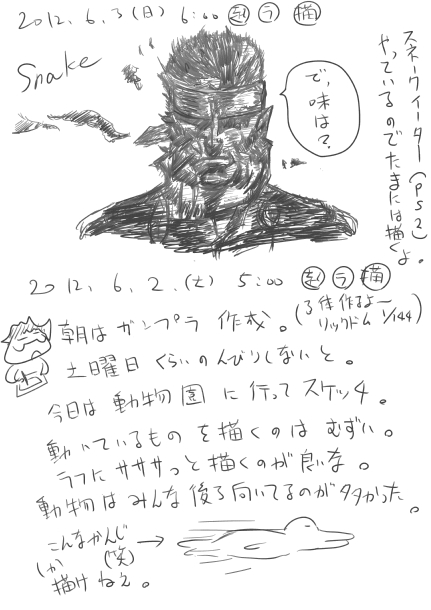 2012.6.3(日) 6:00 起 ラ 描
Snake
で、味は?
スネークイーター(PS2)
やっているのでたまには描くよ。
2012.6.2.(土) 5:00 起 ラ 描
(3体作るよ〜
リックドム 1/144)
朝は ガンプラ 作成。
土曜日 くらいのんびりしないと。
今日は 動物園 に 行って スケッチ。
動いているもの を 描くのは むずい。
ラフに サササっと 描くのが 良いな。
動物は みんな 後ろ向いてるのが 多かった。
こんなかんじ →
しか (笑)
描けねぇ。